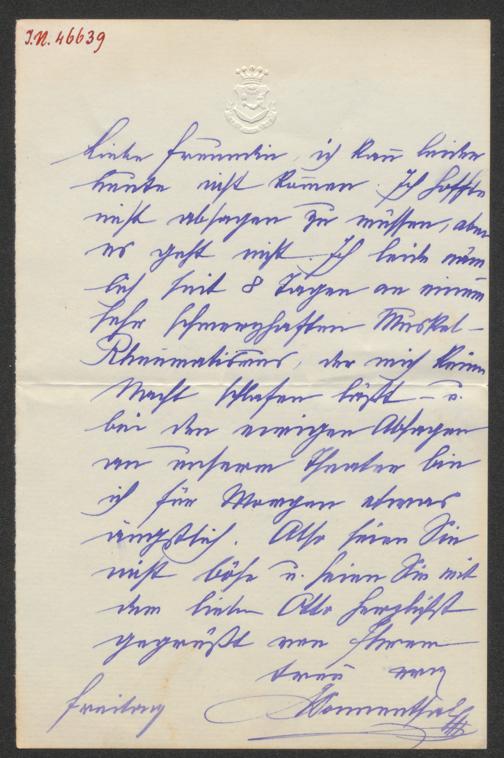 I.N. 46639
Liebe Freundin, ich kann leider
heute nicht kommen. Ich hoffte
nicht absagen zu müssen, aber
es geht nicht. Ich leide näm
lich seit 8 Tagen an einem
sehr schmerzhaften Muskel-
Rheumatismus, der mich keine
Nacht schlafen läßt – u.
bei den ewigen Absagen
an unserem Theater bin
ich für Morgen etwas
ängstlich. Also seien Sie
nicht böse u. seien Sie mit
dem lieben Otto herzlichst
gegrüßt von Ihrem
treu erg
Freitag Sonnenthal